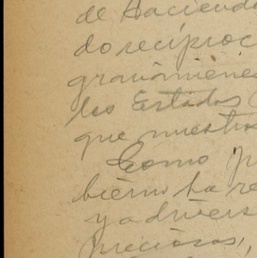 de Haciend
do recíproc
gravámene
los Estados
que nuestro
Como p
bierno ha re
y a divers
preciosas,